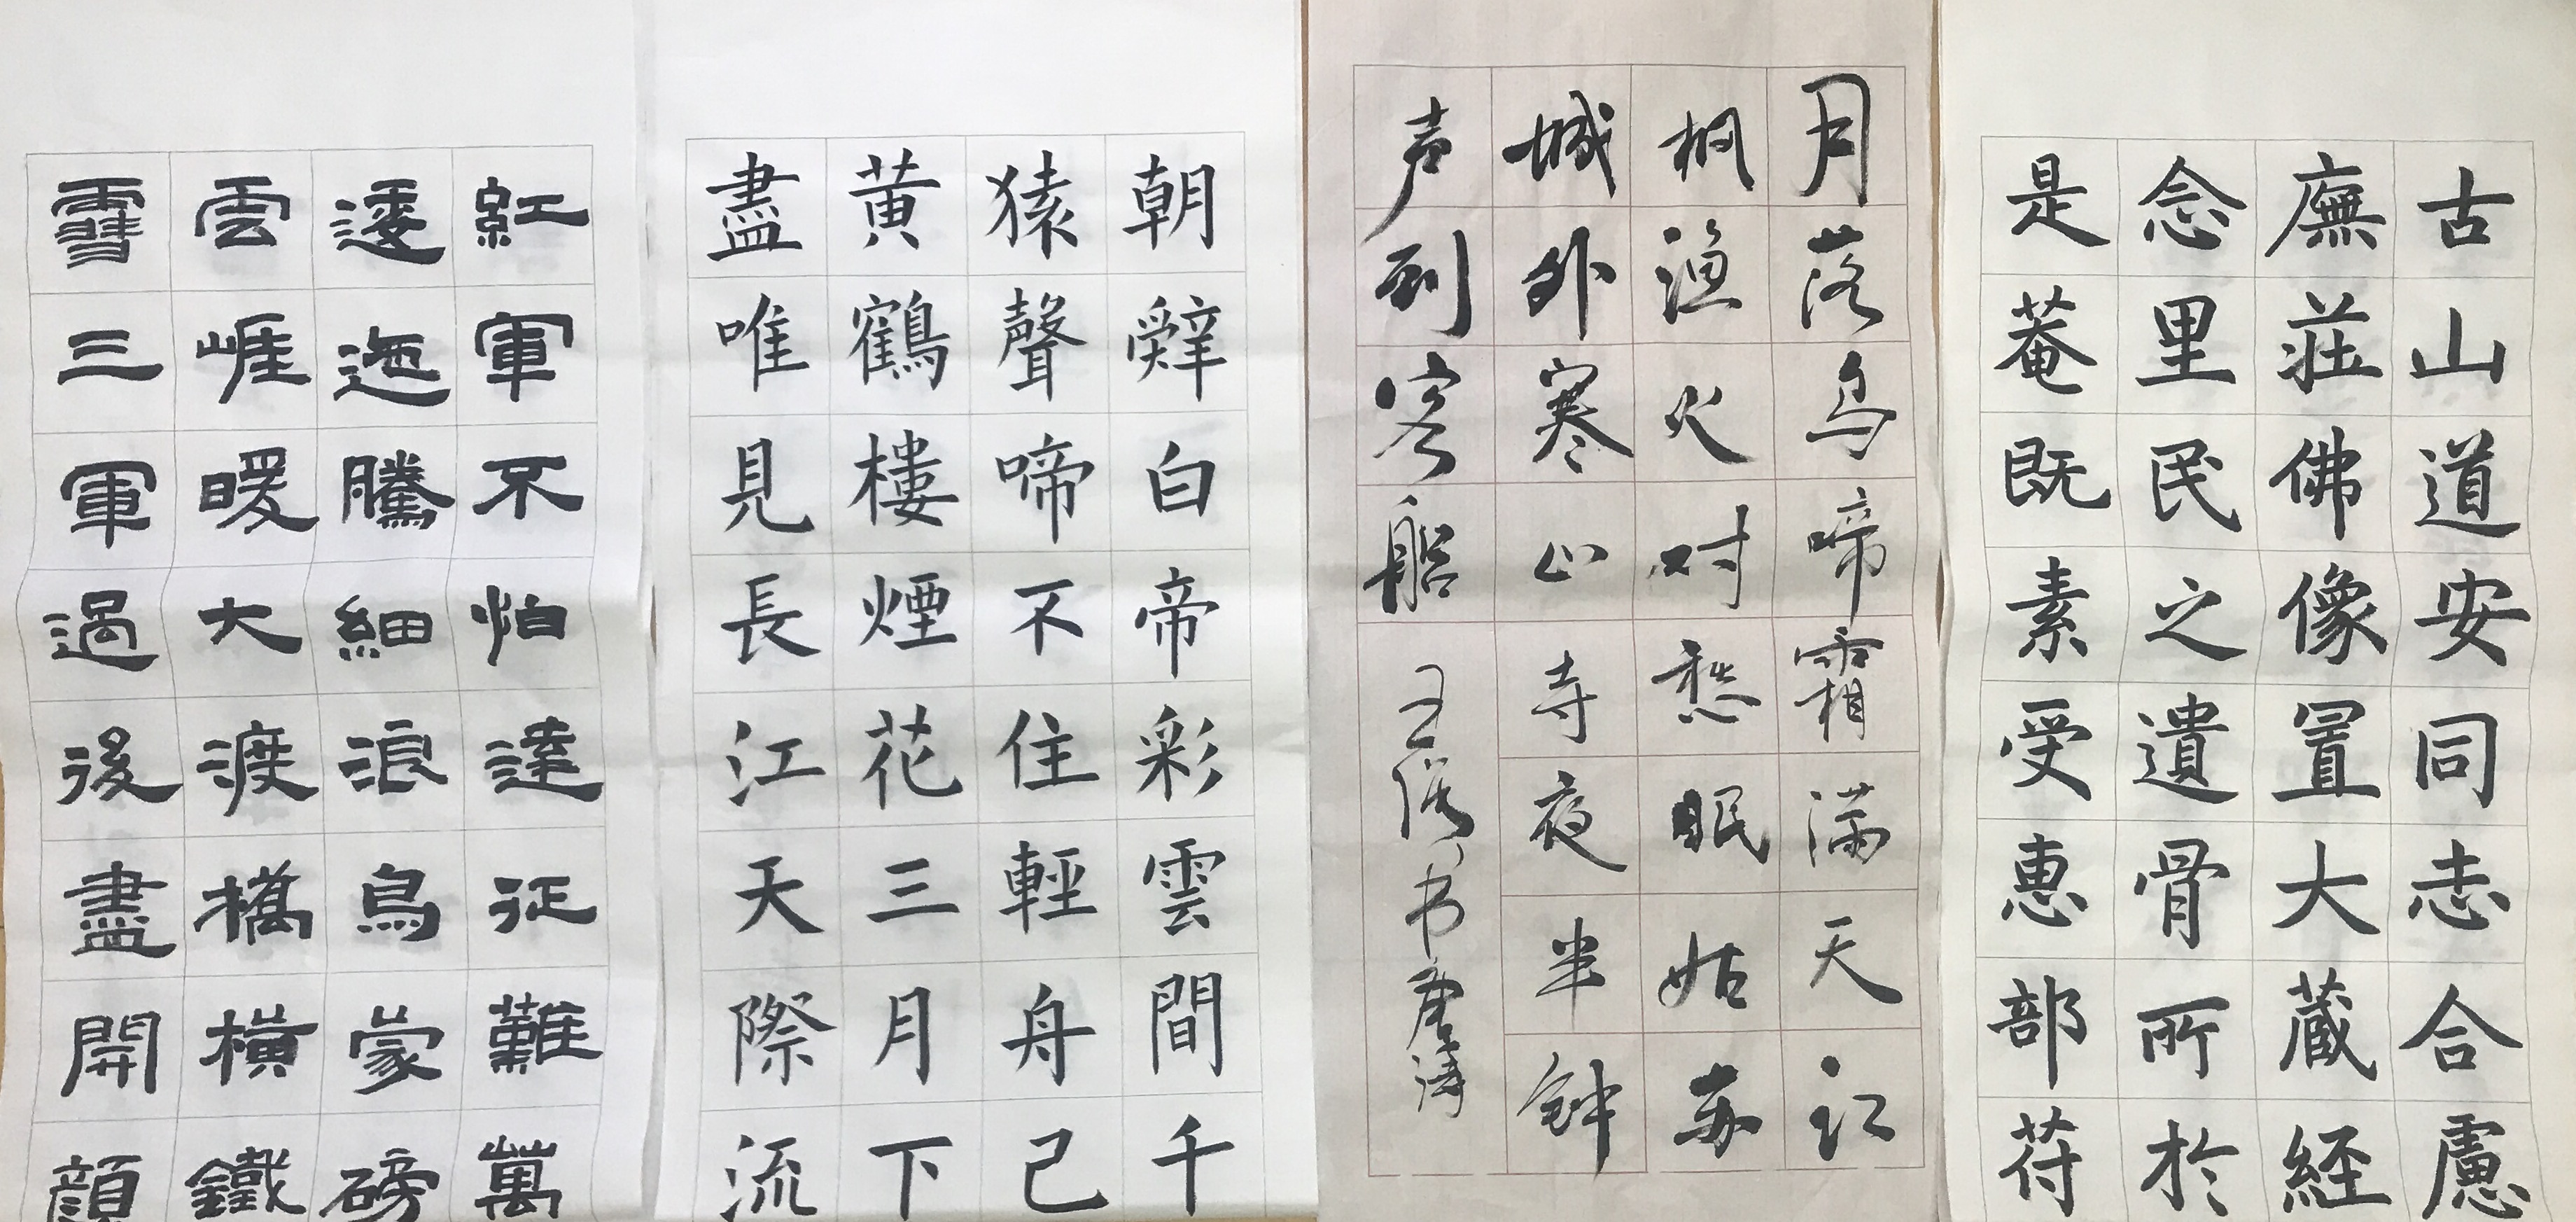 古山道安同志合慮
廡莊佛像置大藏經
念里民之遺骨所於
是菴既素受惠部苻
月落乌啼霜满天江
枫渔火对愁眠姑苏
城外寒山寺夜半钟
声到客船
书唐诗
朝辤白帝彩雲間千
猿聲啼不住輕舟已
黄鶴樓煙花三月下
盡唯見長江天際流
紅軍不怕遠征難萬
逶迤騰細浪烏蒙磅
雲崖暖大渡橋橫鐵
雪三軍過後盡開顏